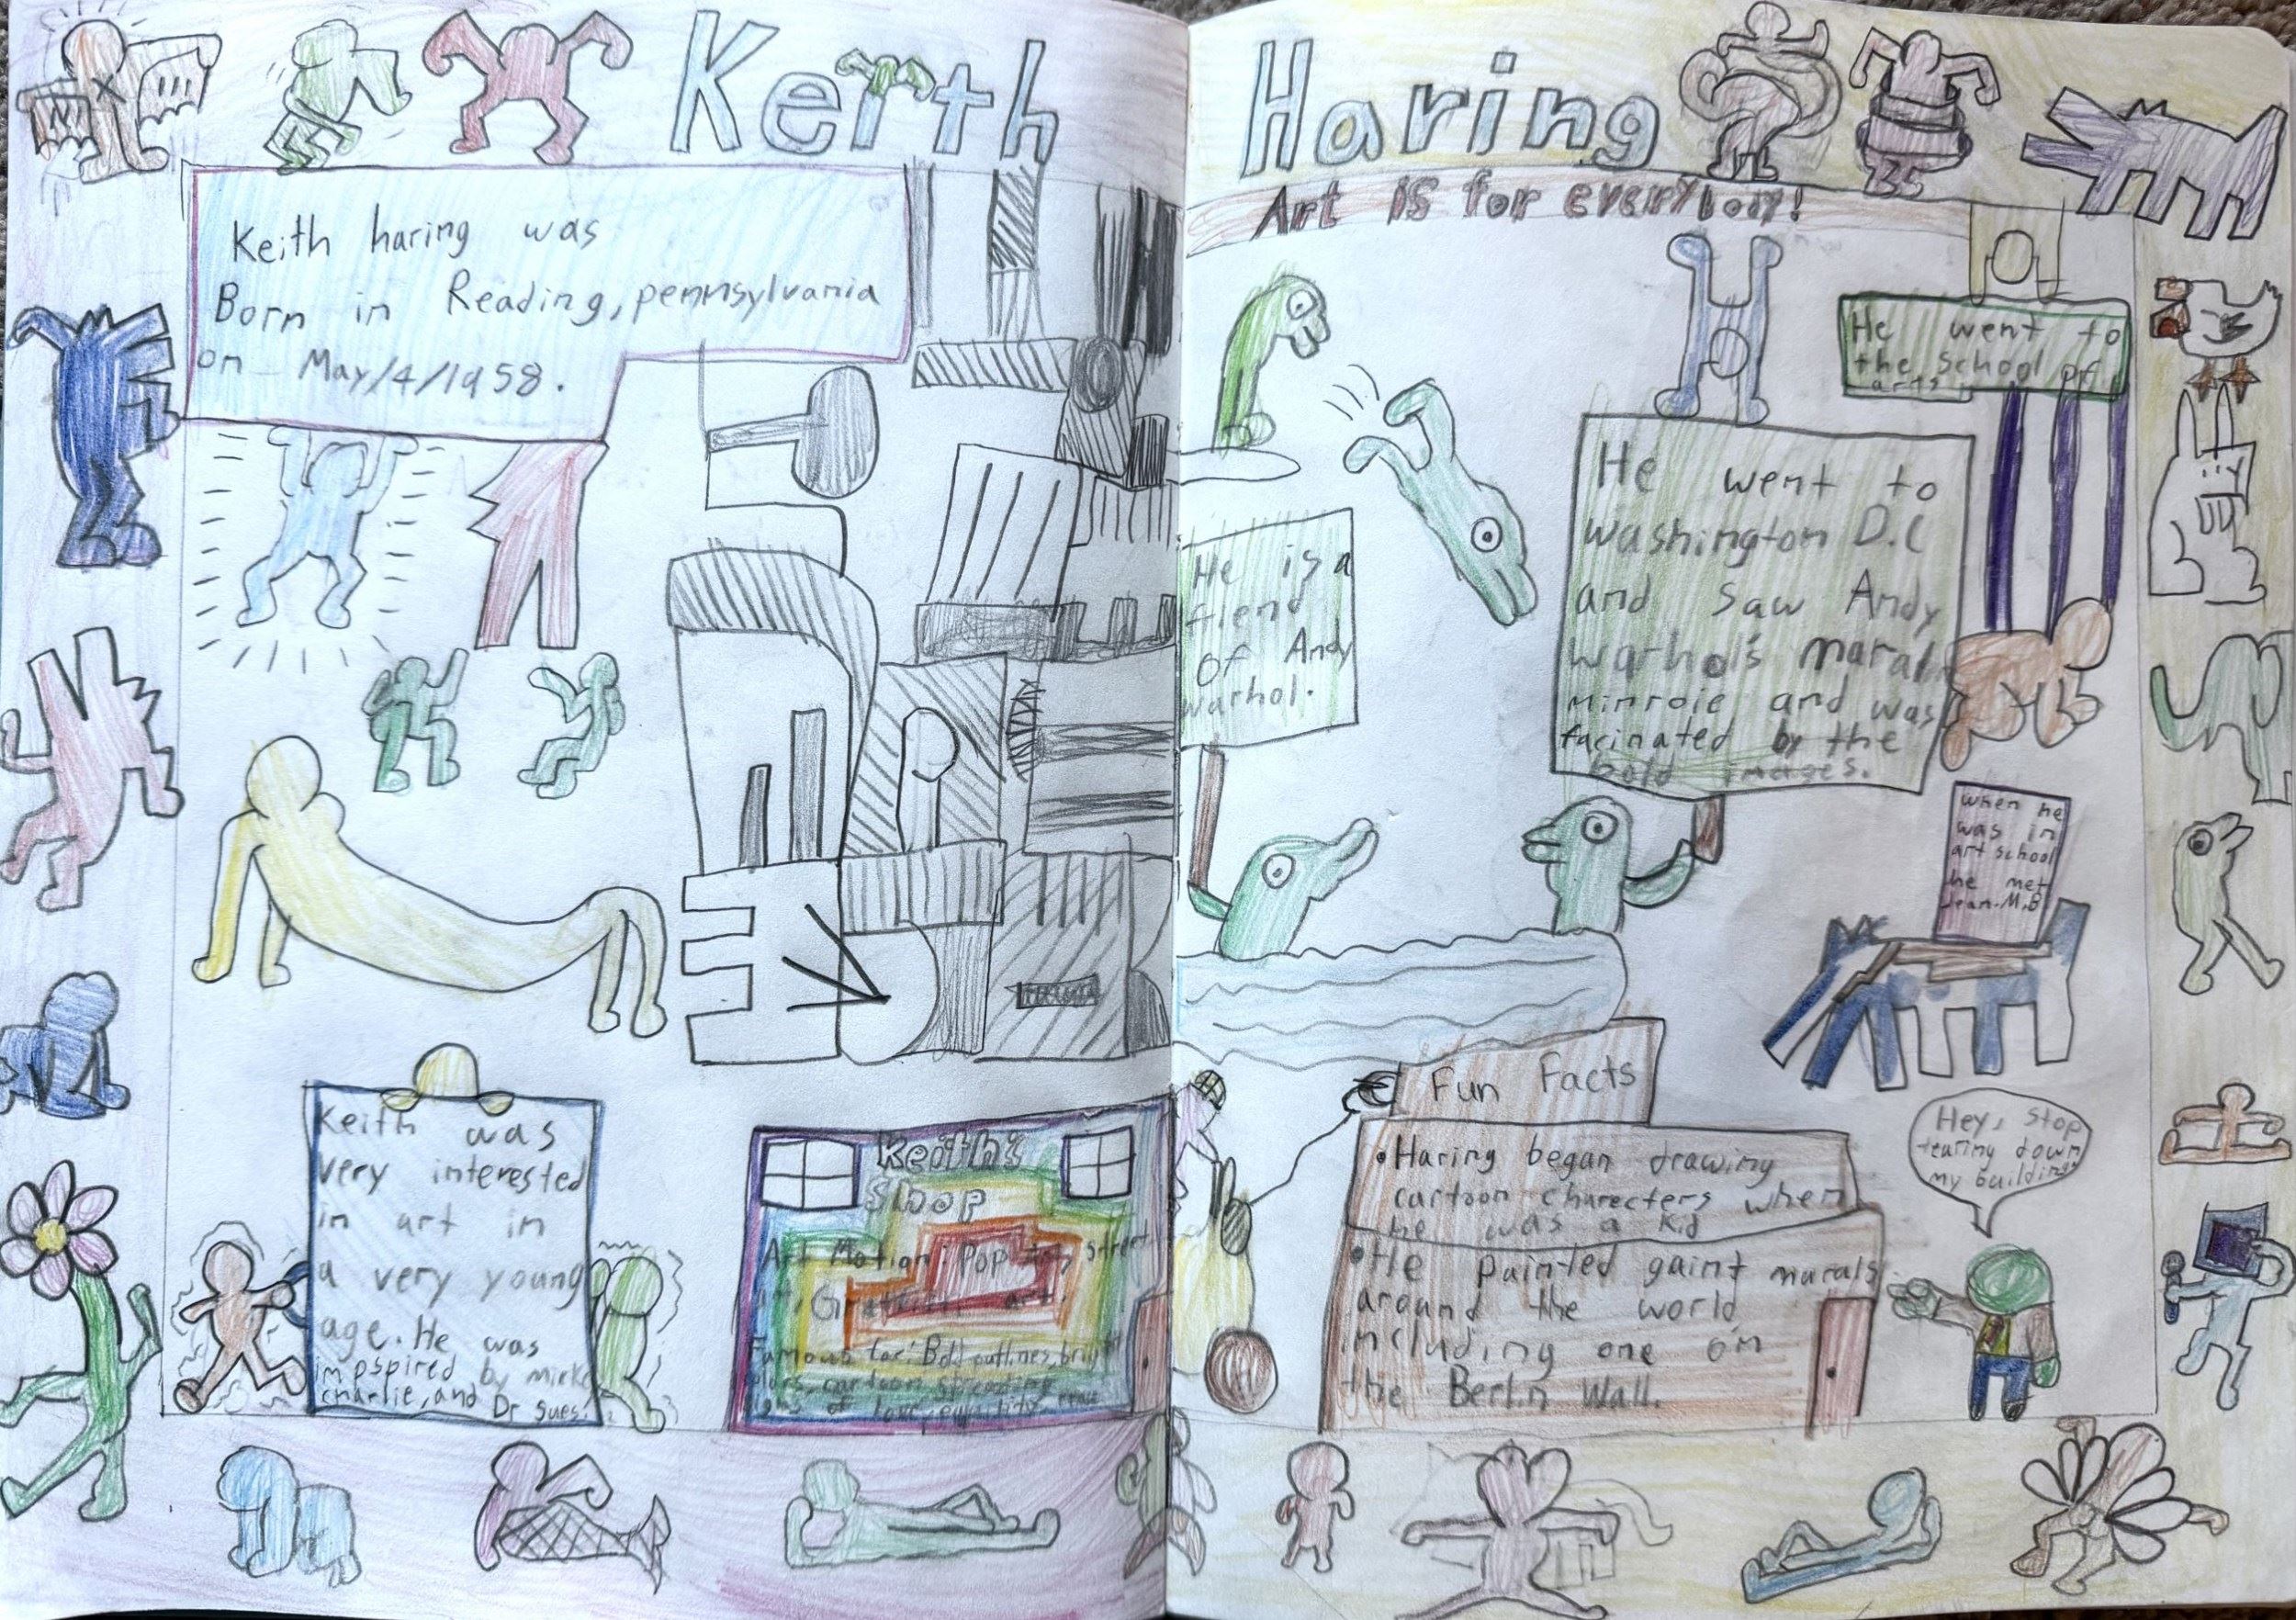 Keith Haring
Art is for everybody!
Keith haring was
Born in Reading, pennsylvania
on May/4/1958.
He is a
fiend
of Andy
warhol.
He went to
the School of
arts
He went to
washington D.C
and saw Andy
warhol's maral
minroie and was
facinated by the
bold images.
when he
was in
art school
he met
Jean-M.B
Keith was
very interested
in art in
a very young
age. He was
impspired by
charlie, and Dr sues.
Keith's
Shop
Art Motion: Pop art, street
art, art,
Famous for: Bold outlines, bright
colors, cartoon, spreading
signs of love, equality,
Fun Facts
• Haring began drawing
cartoon charecters when
he was a kid
• He painted gaint murals
around the world
including one on
the Berlin Wall.
Hey, stop
tearing down
my building!